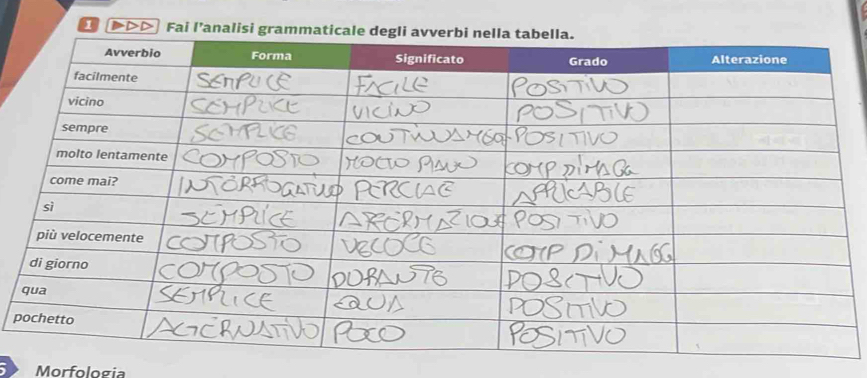 1 Fai l'analisi grammaticale degli avverbi nella tabella.
Avverbio Forma Significato Grado Alterazione
facilmente SEMPLICE FACILE POSITIVO
vicino SEMPLICE VICINO POSITIVO
sempre SEMPLICE POSITIVO
molto lentamente COMPOSTO MOLTO PIANO COMP DI MAGG
come mai? INTERROGATIVO PERCHE APPLICABILE
sì SEMPLICE AFFERMAZIONE POSITIVO
più velocemente COMPOSTO VELOCE COMP DI MAGG
di giorno COMPOSTO DURANTE POSITIVO
qua SEMPLICE QUA POSITIVO
pochetto ALTERNATIVO POCO POSITIVO
6 Morfologia